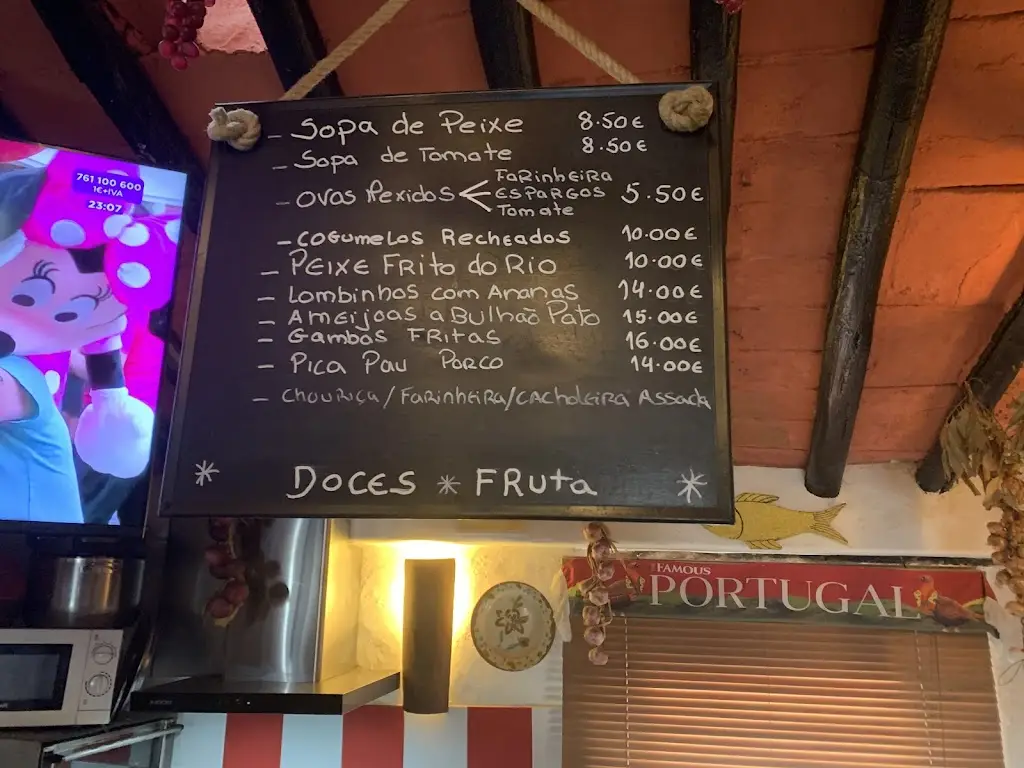 - Sopa de Peixe 8.50€
- Sopa de Tomate 8.50€
- OVOS Mexidos < FARINHEIRA
ESPARGOS 5.50€
Tomate
- COGUMELOS RecHeADOS 10.00€
- PEIXE FRITO do RIO 10.00€
- Lombinhos com Ananas 14.00€
- AMEIJOAS a BulHão Pato 15.00€
- Gambas FRITAS 16.00€
- Pica Pau Porco 14.00€
- CHOURIÇA/FARINHEIRA/CACHOLEIRA ASSADA
* DOCES * FRuta *
761 100 600
1€+IVA
23:07
FAMOUS
PORTUGAL